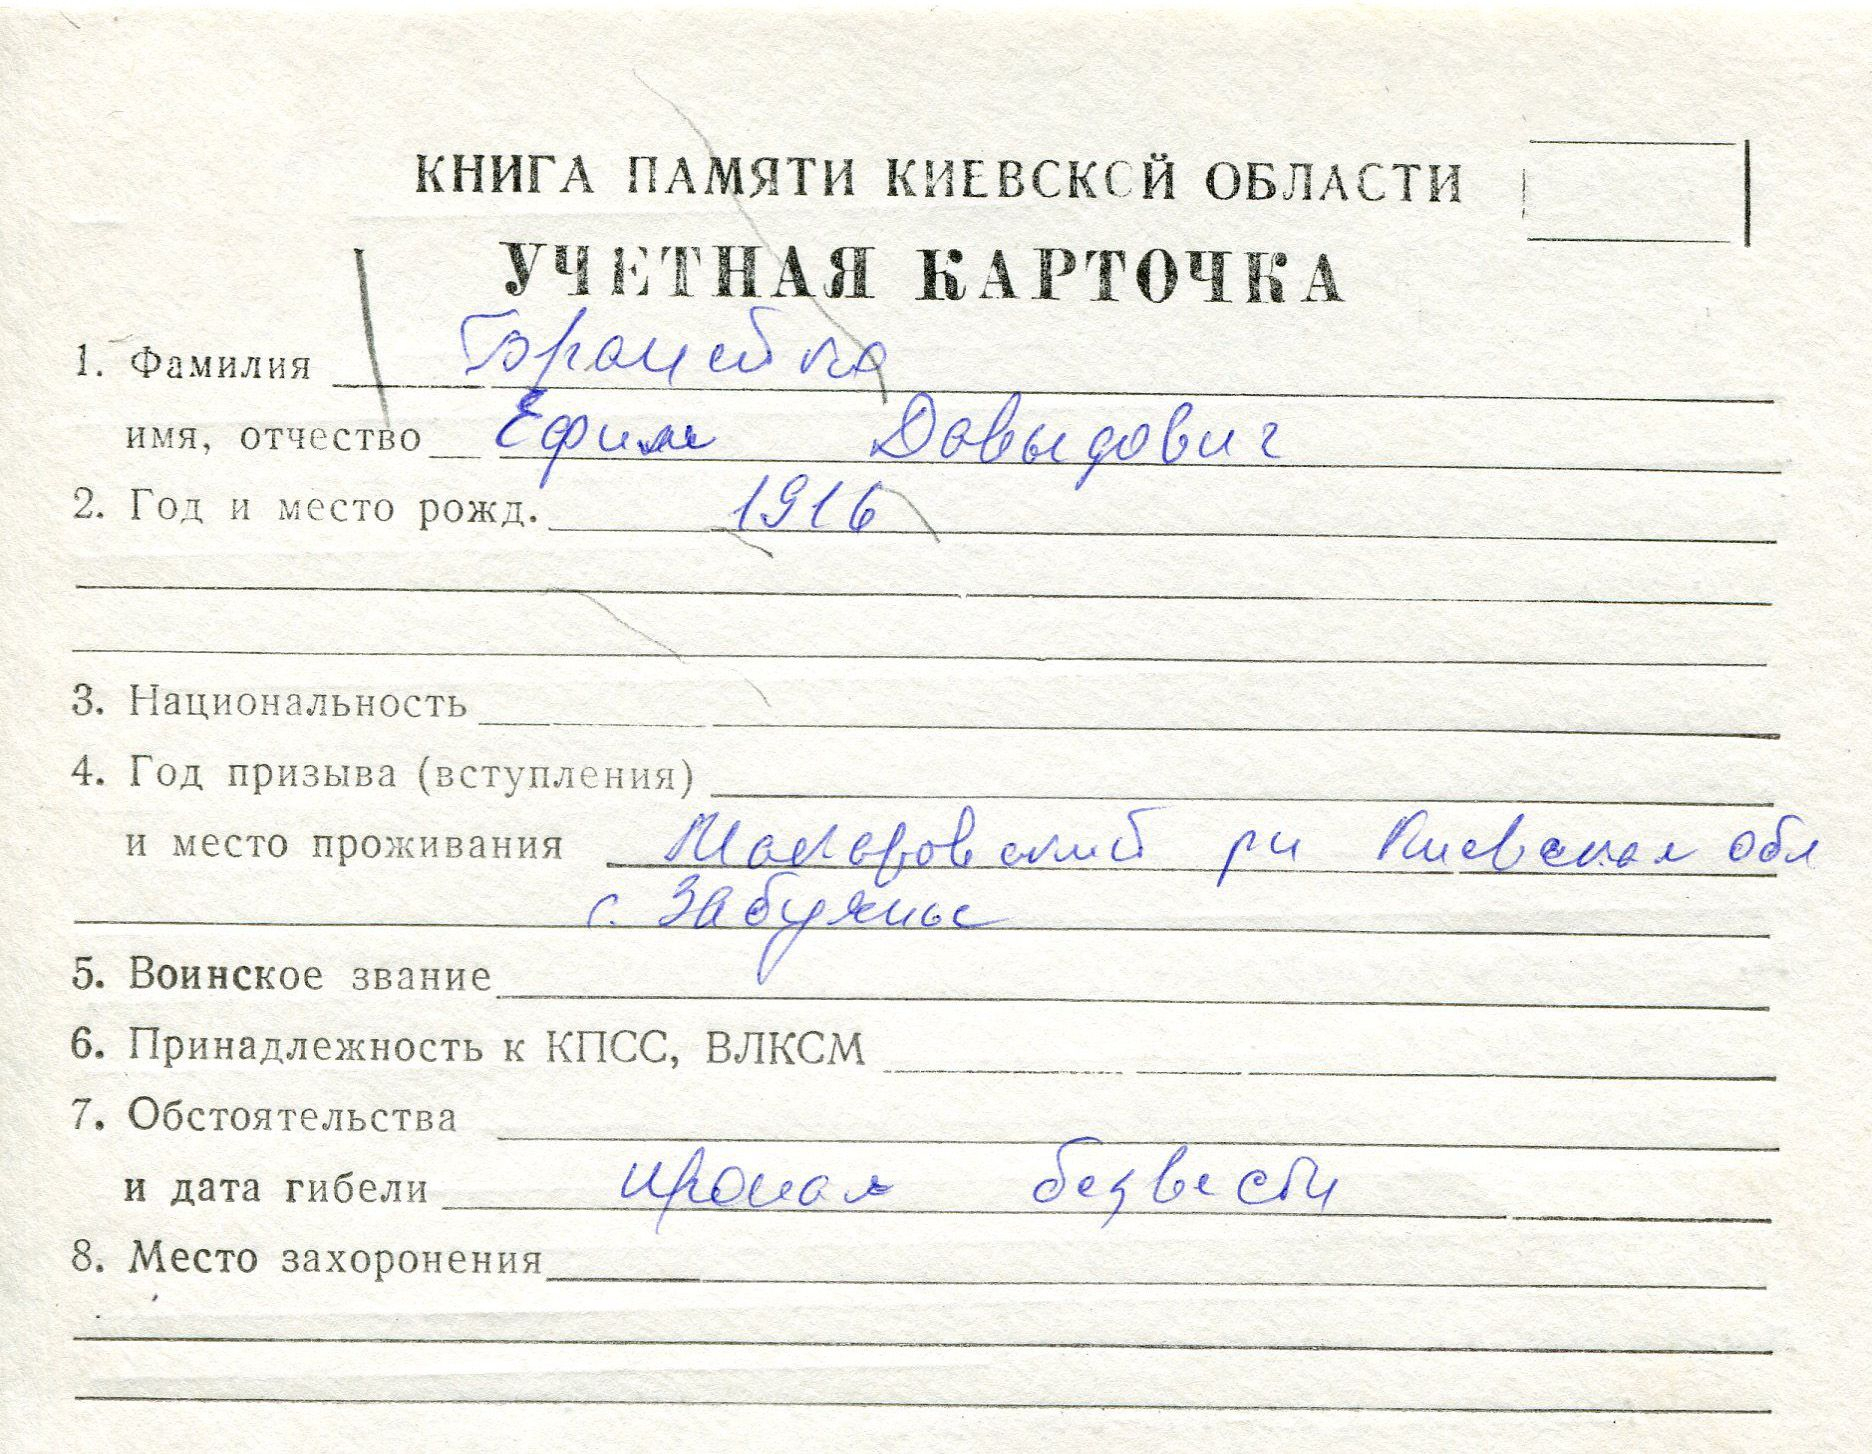 КНИГА ПАМЯТИ КИЕВСКОЙ ОБЛАСТИ
УЧЕТНАЯ КАРТОЧКА
1. Фамилия
имя, отчество Ефим Довыдович
2. Год и место рожд. 1916
3. Национальность
4. Год призыва (вступления)
и место проживания Макаровский рн Киевская обл
с.
5. Воинское звание
6. Принадлежность к КПСС, ВЛКСМ
7. Обстоятельства
и дата гибели пропал безвести
8. Место захоронения